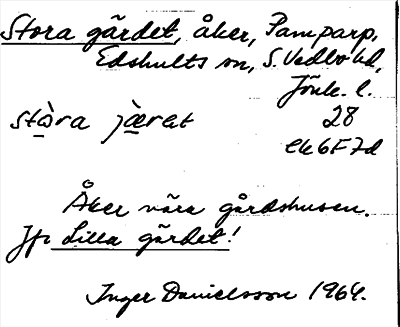 Stora gärdet, åker, Pamparp,
Edshults sn, S. Vedbo hd,
Jönk. l.
stòra jæ̀rat 28
ek6F7d
Åker nära gårdshusen.
Jfr Lilla gärdet!
Inger Danielsson 1964.